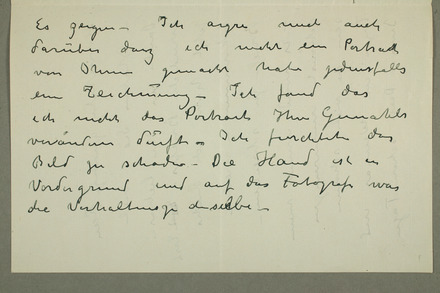 Es zeigen – Ich argre mich auch
darüber das ich nicht ein Portrait
von Ihnen gemacht habe jedenfalls
eine Zeichnung – Ich fand das
ich nicht das Portrait Ihres Gemahls
verändern dürfte. Ich fürchtete das
Bild zu schaden – Die Hand ist im
Vordergrund und auf das Fotografi was
die Verhaltnisse dieselbe –